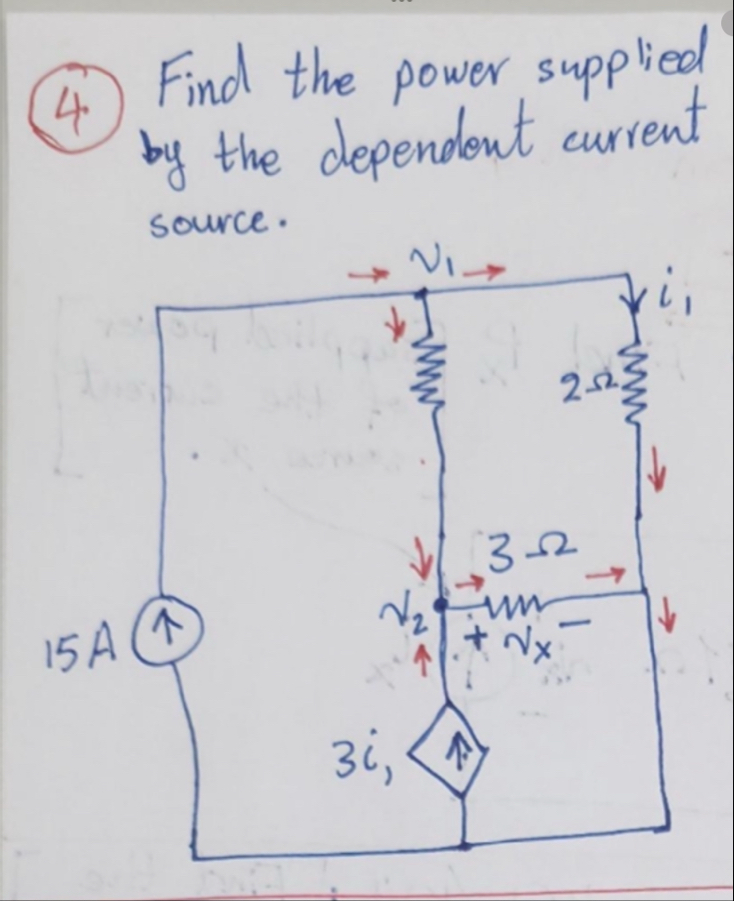 4
Find the power supplied
by the dependent current
source.
V₁
i₁
2Ω
3Ω
V₂
+ Vx −
15A
3i₁